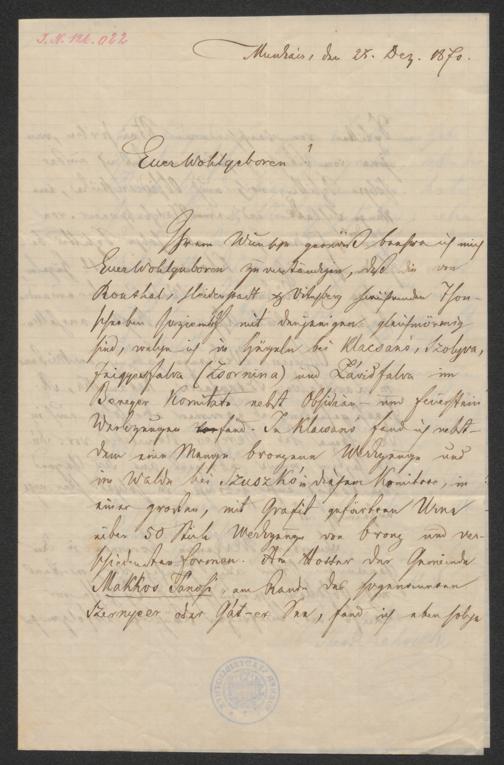 J.N. 126.022
Munkács, den 28. Dez. 1870.
Euer Wohlgeboren!
Ihrem Wunsche gemäß, beehre ich mich
Euer Wohlgeboren zu verständigen, daß die von
Ronthal, Heidenstadt
scherben mit denjenigen gleichförmig
sind, welche ich in Hügeln bei Klacsanó, Szolyva,
(Zsornina) und Dávidfalva im
Bereger Komitate nebst Obsidian- und Feuerstein
Werkzeugen fand. In Klacsanó fand ich nebst-
dem eine Menge bronzene Werkzeuge und
im Walde bei Szuszkó in diesem Komitate, in
einer großen, mit Grafit gefärbten Urne
über 50 Stück Werkzeuge von Bronz und ver-
schiedensten Formen. Am Hotter der Gemeinde
Makkos Jánosi, am Rande des sogenannten
Szernyeer oder Gát-er See, fand ich eben solche